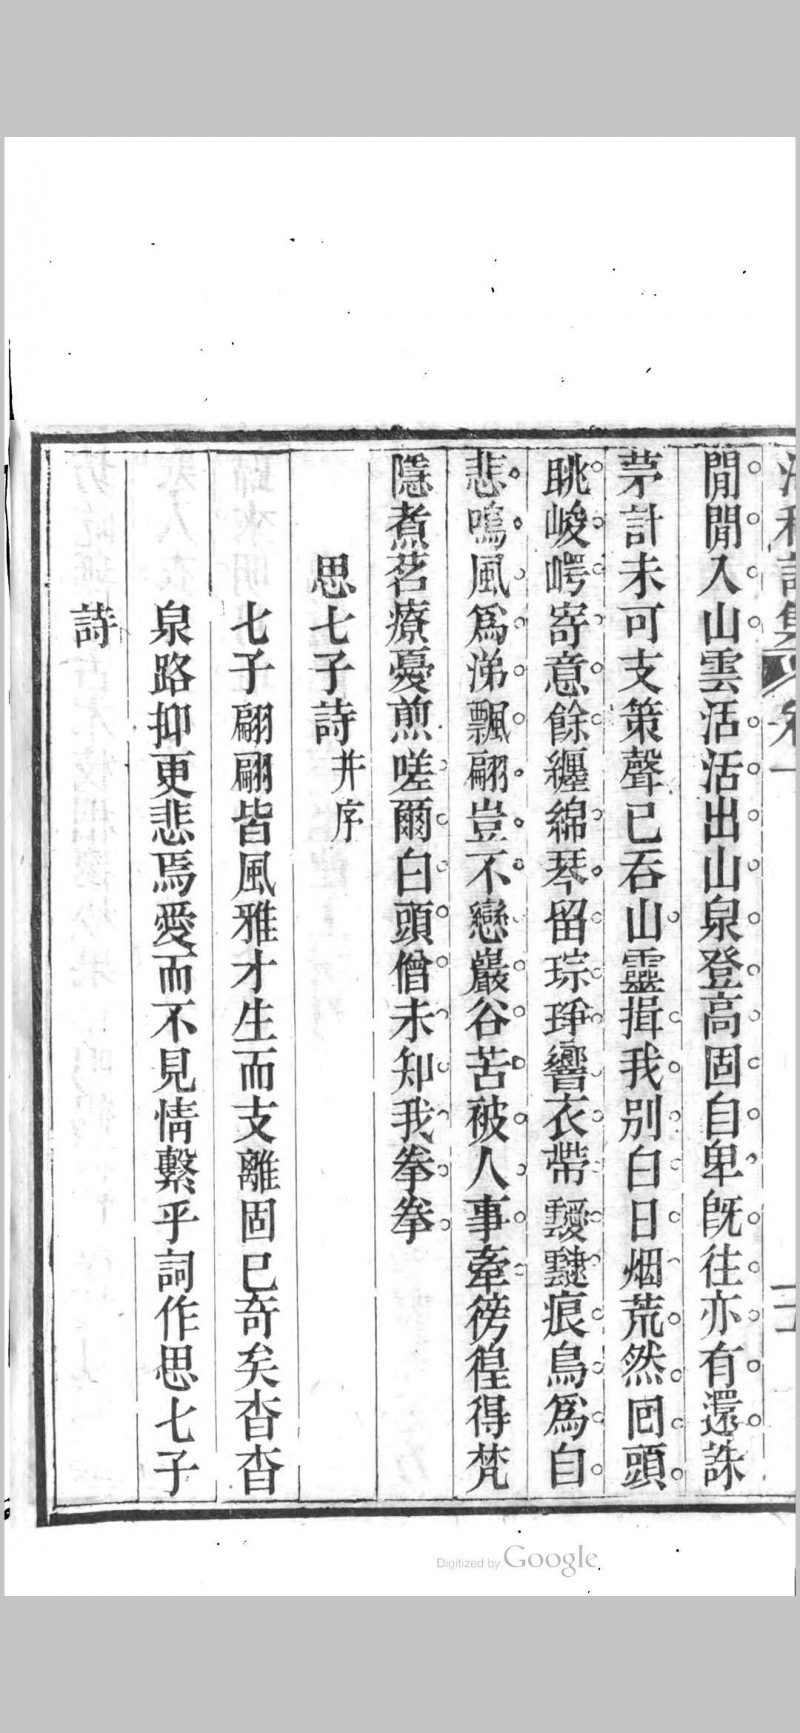 閒閒入山雲活活出山泉登高固自卑旣往亦有還誅
茅計未可支策聲已吞山靈揖我別白日烟荒然回頭
眺峻崿寄意餘纏綿琴留琮琤響衣帶靉靆痕鳥爲自
悲鳴風爲涕飄翩豈不戀巖谷苦被人事牽徬徨得梵
隱煮茗療憂煎嗟爾白頭僧未知我拳拳
思七子詩并序
七子翩翩皆風雅才生而支離固已奇矣杳杳
泉路抑更悲焉愛而不見情繫乎詞作思七子
詩
Digitized by Google